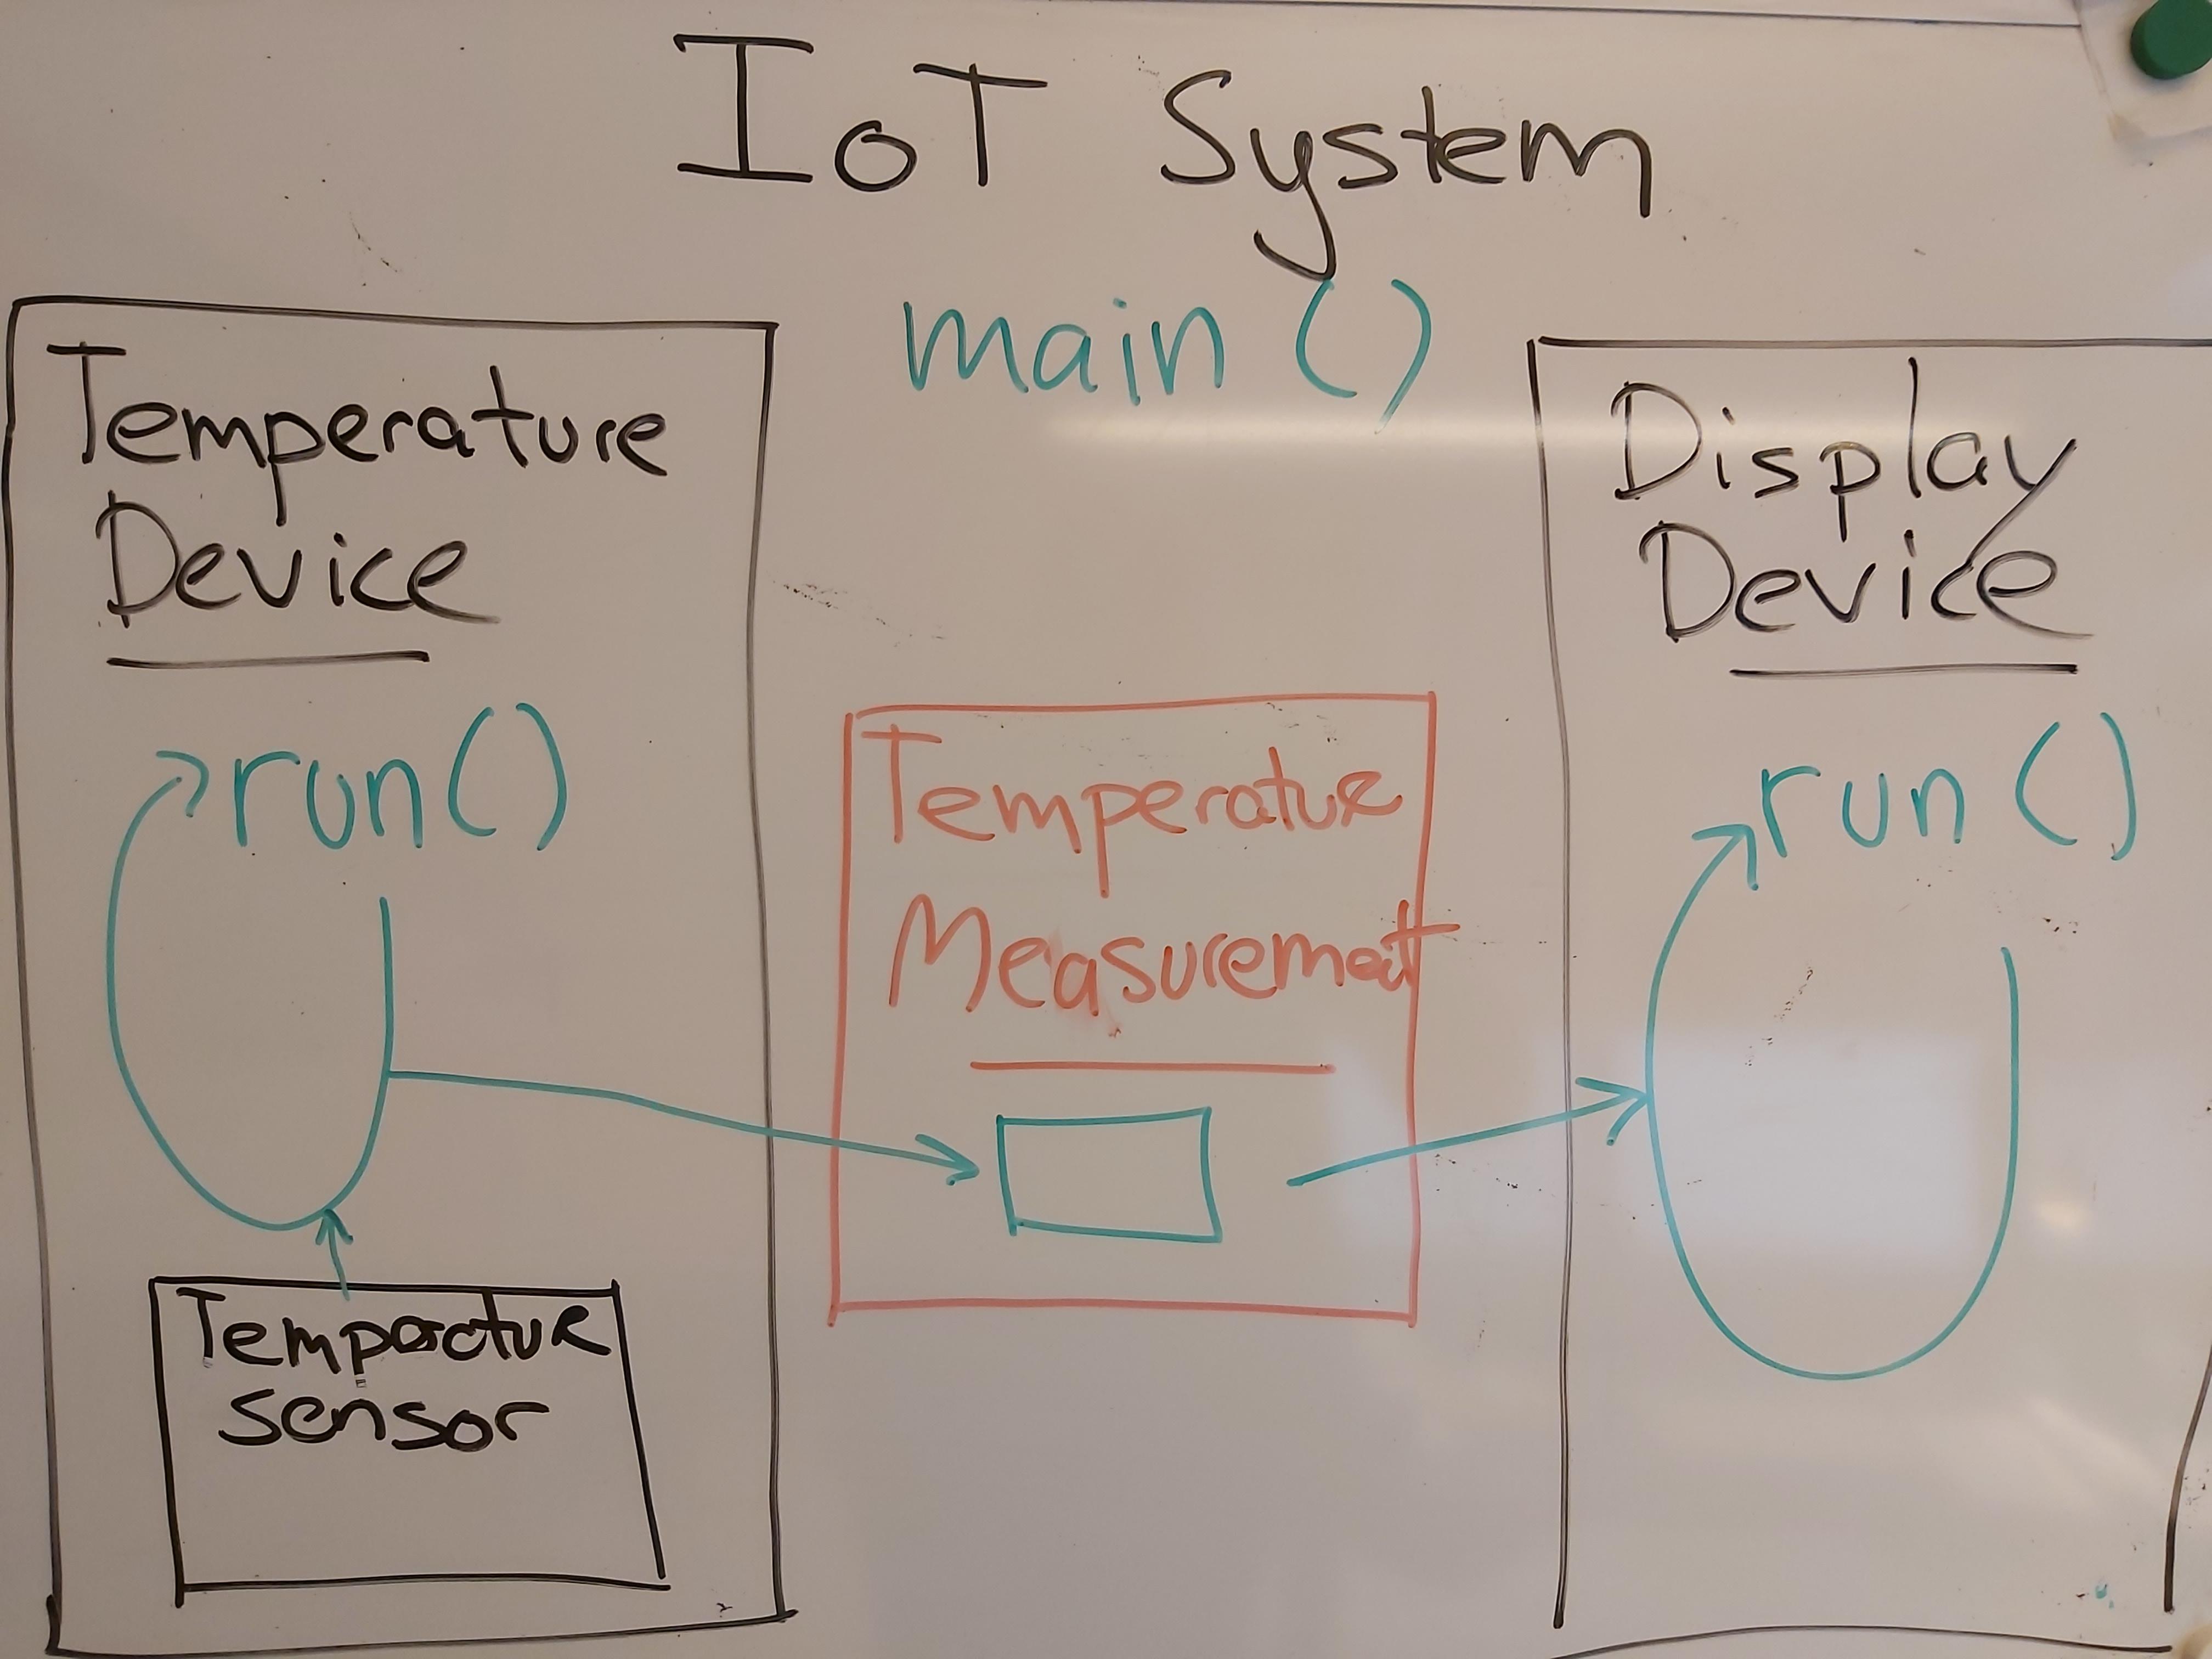 IoT System
main()
Temperature
Device
run()
Temperature
sensor
Temperature
Measurement
Display
Device
run()